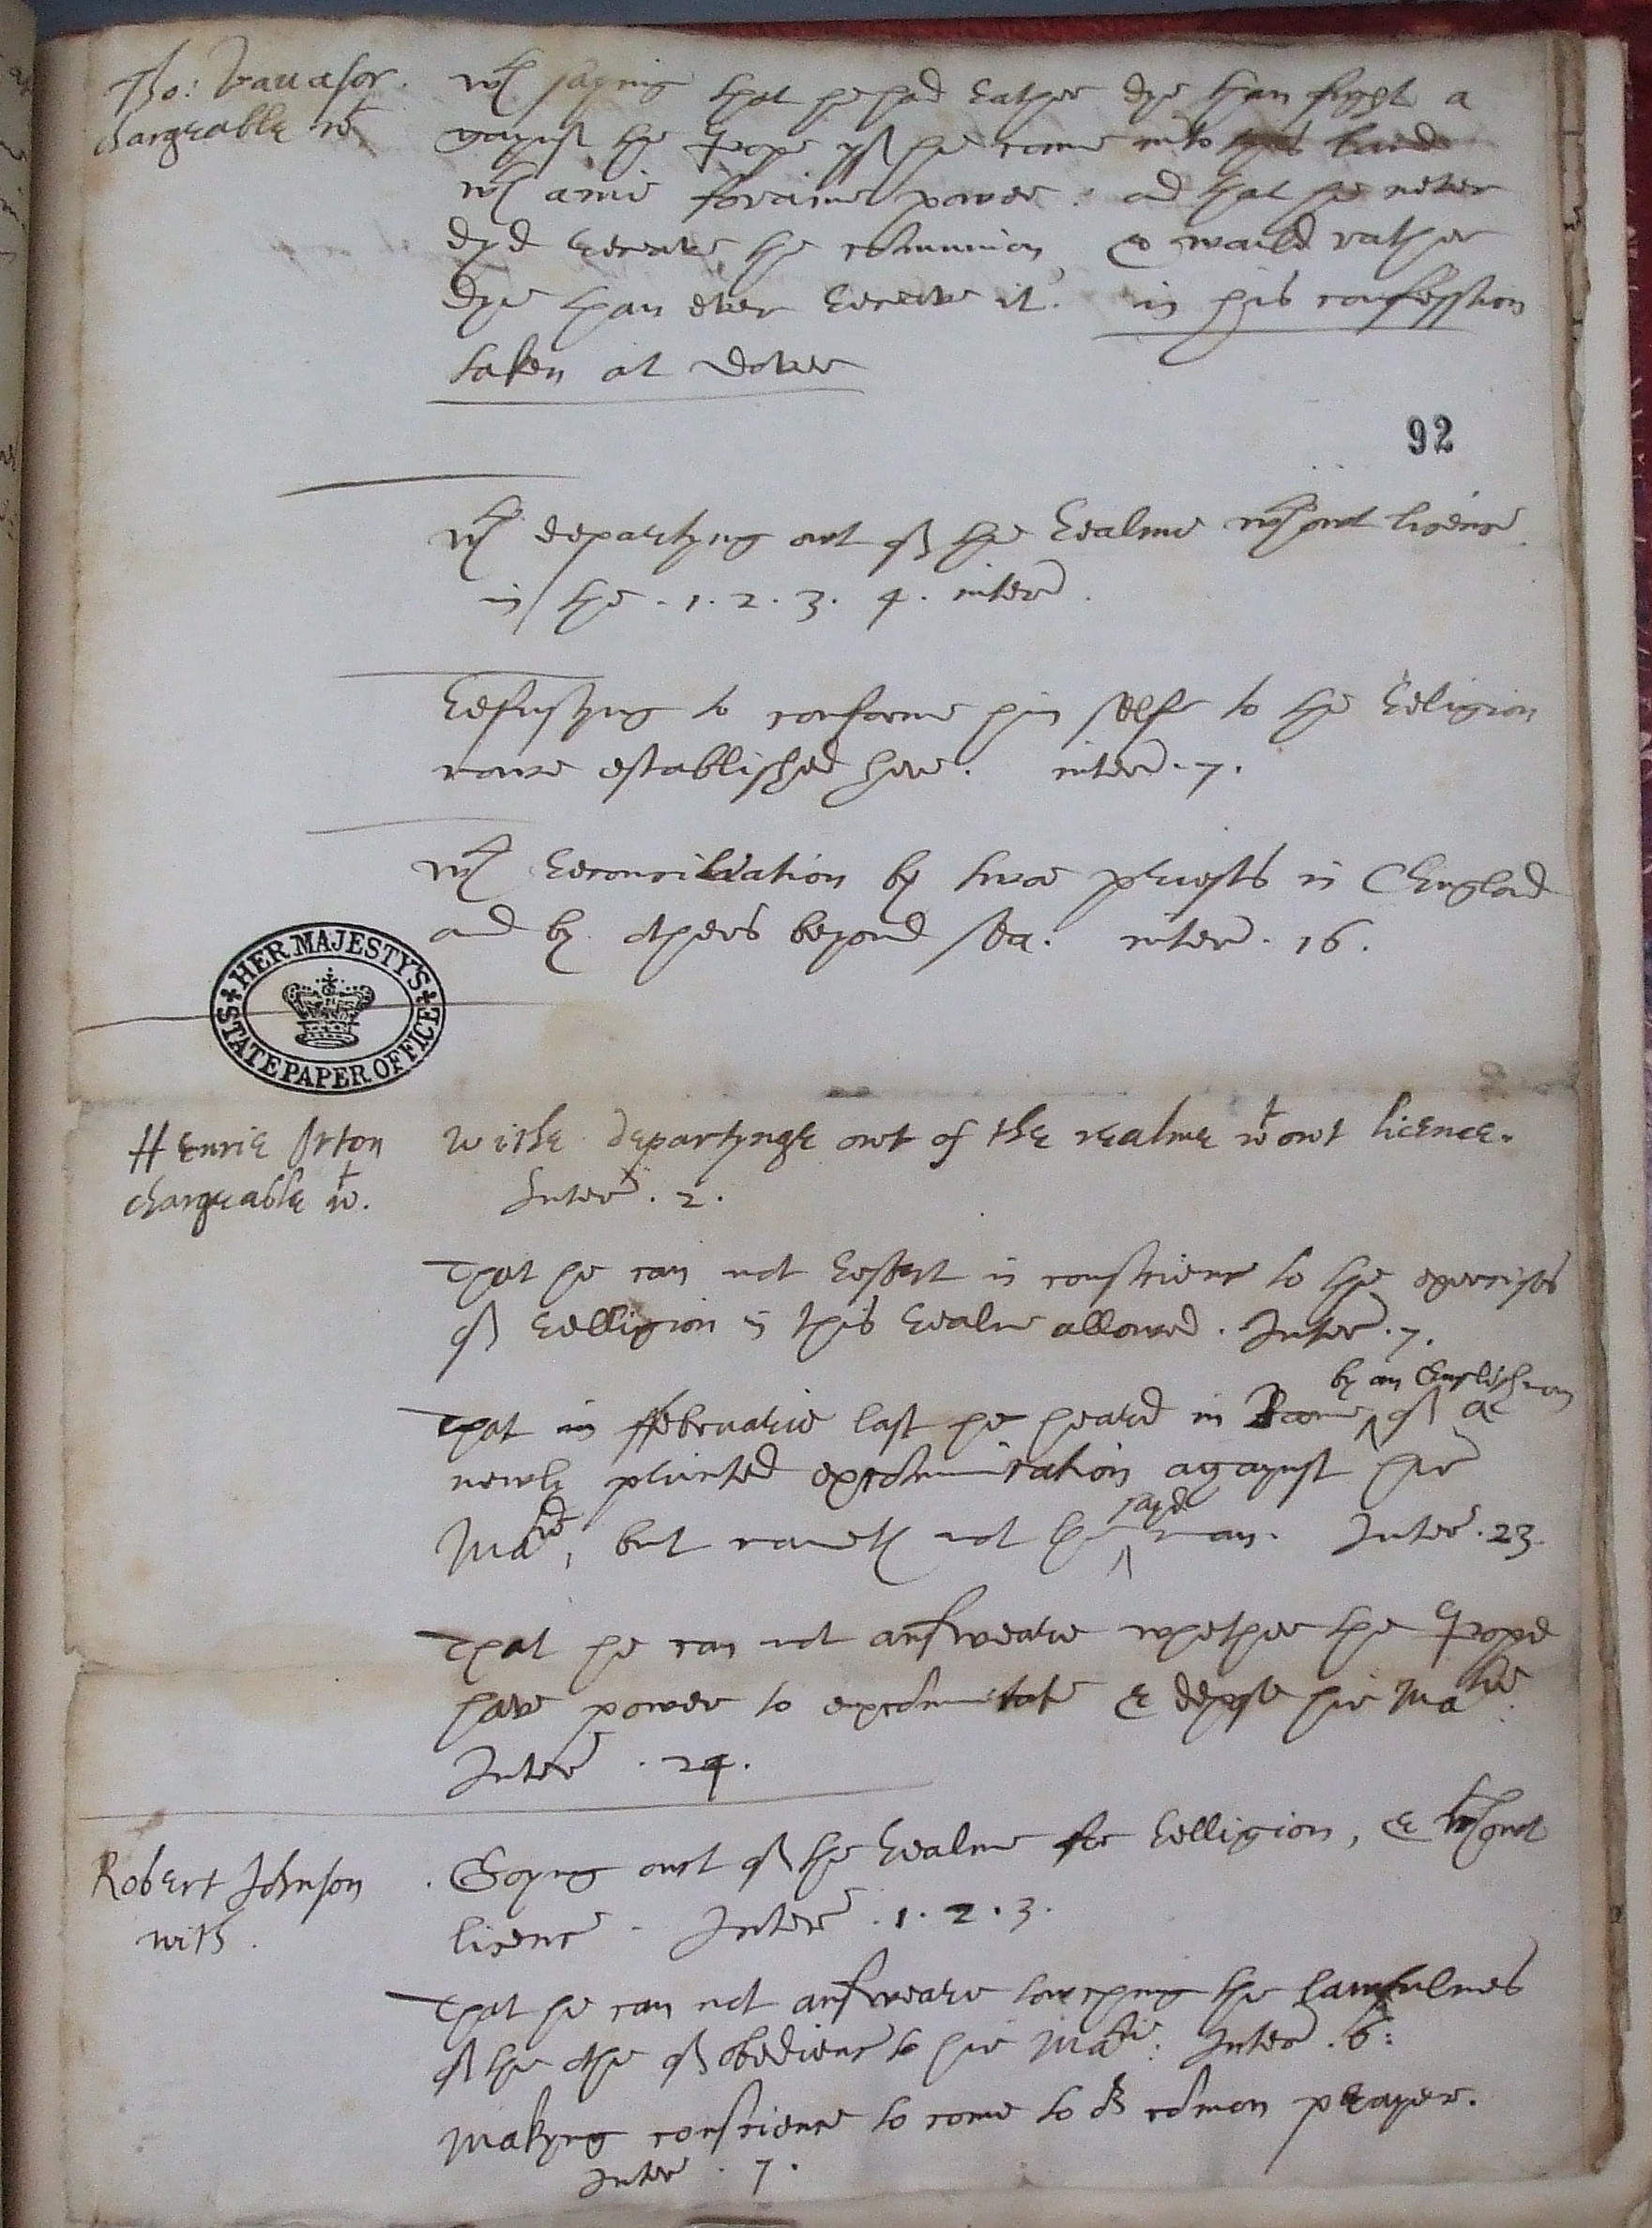 Tho: Vauasor.
chargeable wt
wth saying that he had rather dye than fyght a
gaynst the Pope yf he came into this land
wth anie foraine power: ad that he never
dyd receave the cōmunion & would rather
dye than ever receive it. in his confession
taken at Dover
92
wth departyng owt of the realme wthowt licence.
in the .1.2.3.4. inter.
refusyng to conforme him self to the religion
nowe established here. inter.7.
wth reconciliation by twoe priests in England
and by others beyond sea. inter. 16.
HER MAJESTY'S
STATE PAPER OFFICE
Henrie Orton
chargeable wt.
withe departynge owt of the realme wtowt licence.
Inter. 2.
That he can not resort in conscience to the exercises
of relligion in this realme allowed. Inter.7.
by an Englishman
That in ffebruarie last he heard in Rome of a
newly printed excōmunication agaynst her
Matie, but nameth not the sayd man. Inter.23.
That he can not answeare whether the Pope
have power to excōmunicate & depose her Matie.
Inter. 24.
Robert Johnson
with.
Goyng owt of the realme for relligion, & wthowt
licence. Inter.1.2.3.
That he can not answeare towchyng the lawfulnes
of the othe of obedience to her Matie: Inter.6:
Makyng conscience to come to cōmon prayer.
Inter. 7.